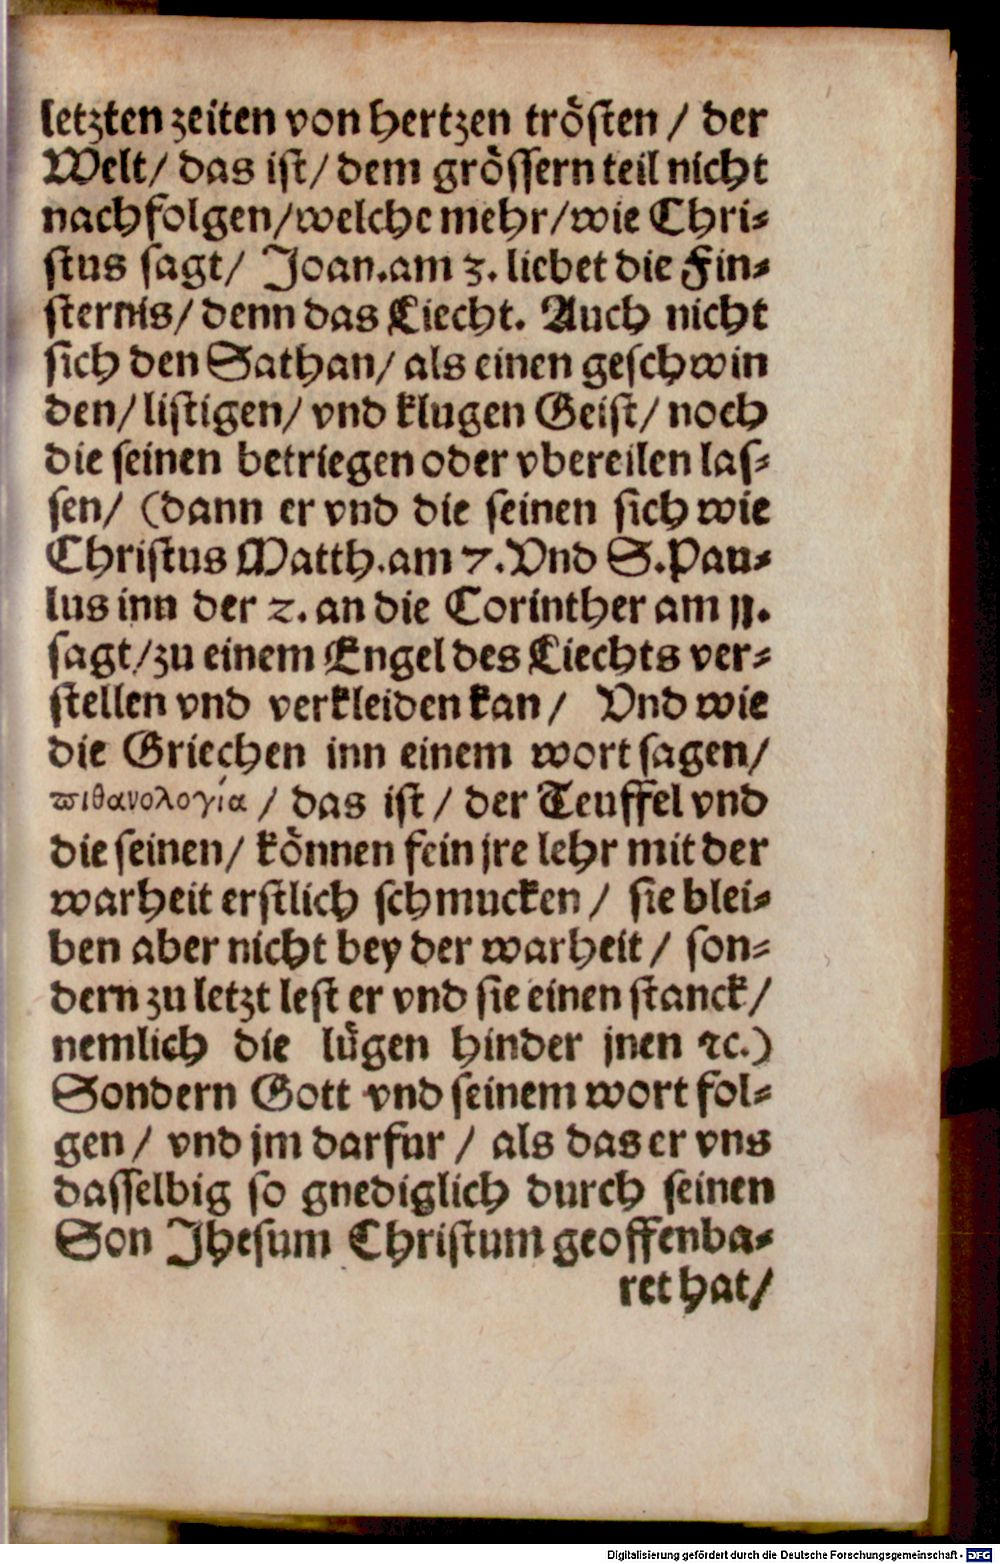 letzten zeiten von hertzen trösten / der
Welt / das ist / dem grössern teil nicht
nachfolgen / welche mehr / wie Chri⸗
stus sagt / Joan. am 3. liebet die Fin⸗
sternis / denn das Liecht. Auch nicht
sich den Sathan / als einen geschwin
den / listigen / vnd klugen Geist / noch
die seinen betriegen oder vbereilen las⸗
sen / (dann er vnd die seinen sich wie
Christus Matth. am 7. Vnd S. Pau⸗
lus inn der 2. an die Corinther am 11.
sagt / zu einem Engel des Liechts ver⸗
stellen vnd verkleiden kan / Vnd wie
die Griechen inn einem wort sagen /
πιθανολογία / das ist / der Teuffel vnd
die seinen / können fein jre lehr mit der
warheit erstlich schmucken / sie blei⸗
ben aber nicht bey der warheit / son⸗
dern zu letzt lest er vnd sie einen stanck /
nemlich die lügen hinder jnen ꝛc.)
Sondern Gott vnd seinem wort fol⸗
gen / vnd jm darfur / als das er vns
dasselbig so gnediglich durch seinen
Son Jhesum Christum geoffenba⸗
ret hat /
Digitalisierung gefördert durch die Deutsche Forschungsgemeinschaft - DFG